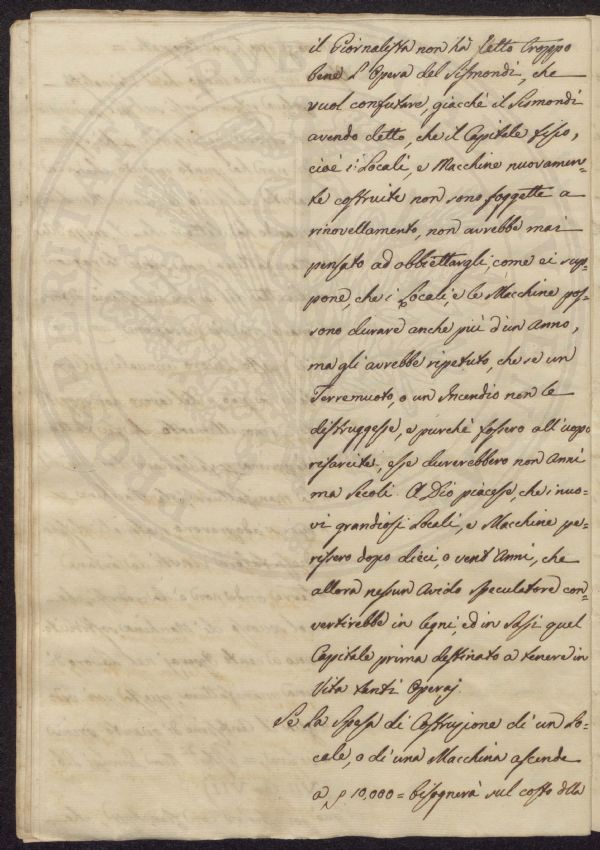 il Giornalista non hà letto troppo
bene l'Opera del Sismondi, che
vuol confutare, giacchè il Sismondi
avendo detto, che il Capitale fisso,
cioè i Locali, e Macchine nuovamen=
te costruite non sono soggette a
rinovellamento, non avrebbe mai
pensato ad obbiettargli, come ei sup=
pone, che i Locali, e le Macchine pos=
sono durare anche più d'un Anno,
ma gli avrebbe ripetuto, che se un
Terremuoto, o un Incendio non le
distruggesse, e purchè fossero all'uopo
risarcite, esse durerebbero non Anni
ma Secoli. A Dio piacesse, che i nuo=
vi grandiosi Locali, e Macchine pe=
rissero dopo dieci, o vent'Anni, che
allora nessun Avido speculatore con=
vertirebbe in legni, ed in Sassi quel
Capitale prima destinato a tenere in
Vita tanti Operaj.
Se la Spesa di Costruzione di un Lo=
cale, o di una Macchina ascende
a 10,000 = bisognerà sul costo della